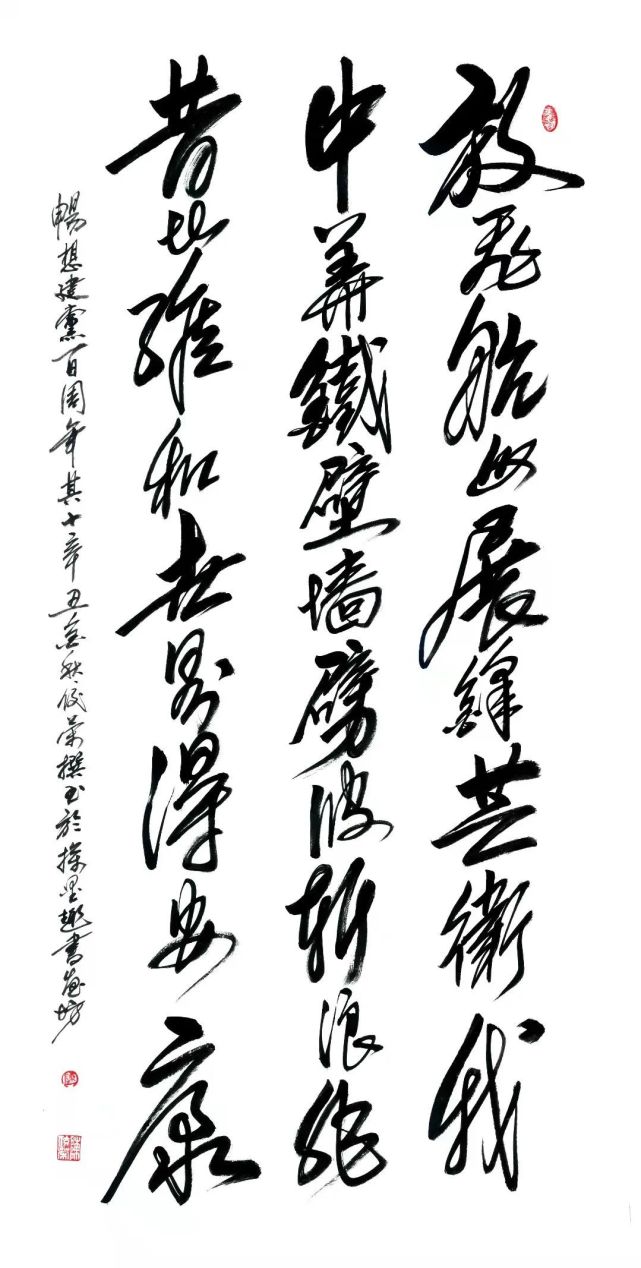 放飛航母展鋒芒衛我
中華鐵壁墙劈波斬浪非
昔比維和世界得安康
暢想建黨百周年其十辛丑金秋俊榮撰书於墨趣書畫坊